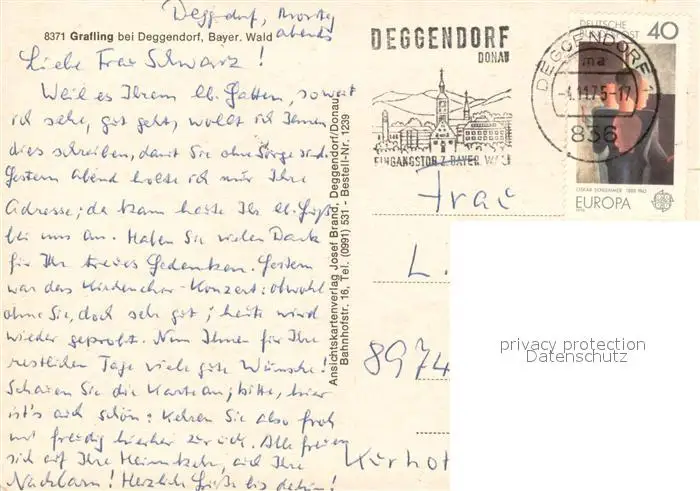 Deggdorf, Montag
abends
8371 Grafling bei Deggendorf, Bayer. Wald
Liebe Frau Schwarz!
Weil es Ihrem lb. Gatten, soweit
ich sehe, gut geht, wollt ich Ihnen
dies schreiben, damit Sie ohne Sorge sind.
Gestern abend holte ich mir Ihre
Adresse; da kam heute Ihr lb. Gruß
bei uns an. Haben Sie vielen Dank
für Ihr treues Gedenken. Gestern
war das Kirchenchor-Konzert: obwohl
ohne Sie, doch sehr gut; heute wird
wieder geprobt. Nun Ihnen für Ihre
restlichen Tage viele gute Wünsche!
Schauen Sie die Karte an; bitte, hier
ist's auch schön: Kehren Sie also froh
und freudig hierher zurück. Alle freuen
sich auf Ihre Heimkehr, auch Ihre
Nachbarn! Herzlich Grüße bis dahin!
Ansichtskartenverlag Josef Brand, Deggendorf/Donau
Bahnhofstr. 16, Tel. (0991) 531 - Bestell-Nr. 1239
DEGGENDORF
DONAU
EINGANGSTOR Z. BAYER. WALD
DEGGENDORF 1
ma
-4.11.75-17
836
DEUTSCHE
BUNDESPOST
40
OSKAR SCHLEMMER 1888-1943
EUROPA
1975
CEPT
Frau
L.
8974
Kurhot
privacy protection
Datenschutz